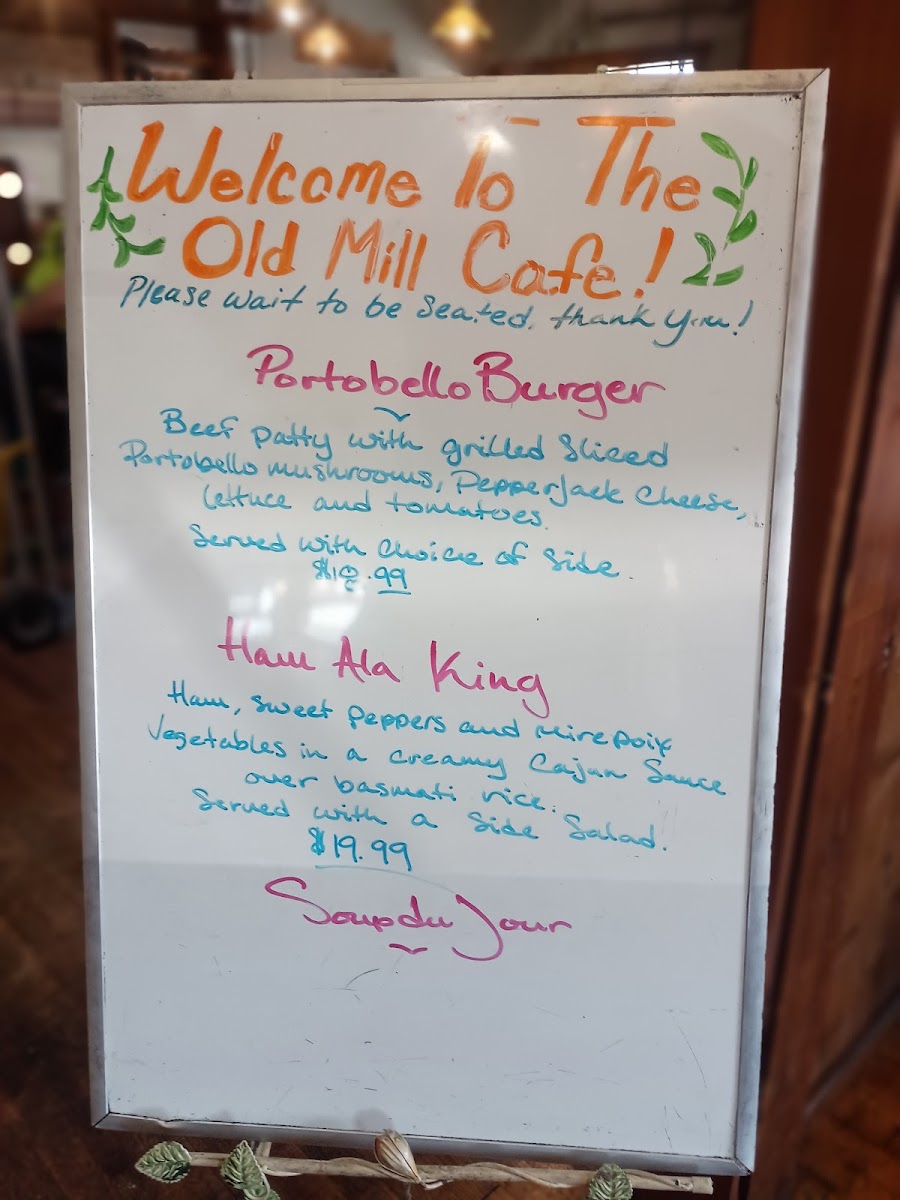 Welcome To The
Old Mill Cafe!
Please wait to be seated, thank you!
Portobello Burger
Beef patty with grilled sliced
Portobello mushrooms, Pepperjack cheese,
lettuce and tomatoes.
Served with choice of side.
Ham Ala King
Ham, sweet peppers and mirepoix
vegetables in a creamy Cajun Sauce
over basmati rice.
Served with a side salad.
$19.99
Soup du Jour